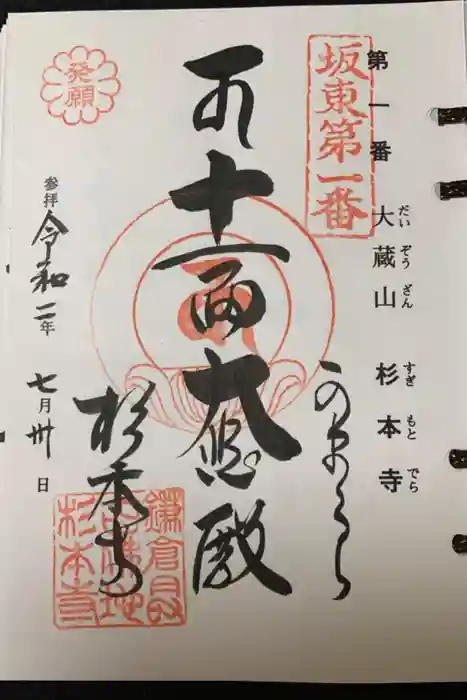 第一番 大蔵山 杉本寺
だい ぞう ざん すぎ もと でら
坂東第一番
かまくら
十一面大悲殿
杉本寺
鎌倉最
古佛地
杉本寺
発願
参拝 令和二年 七月卅日